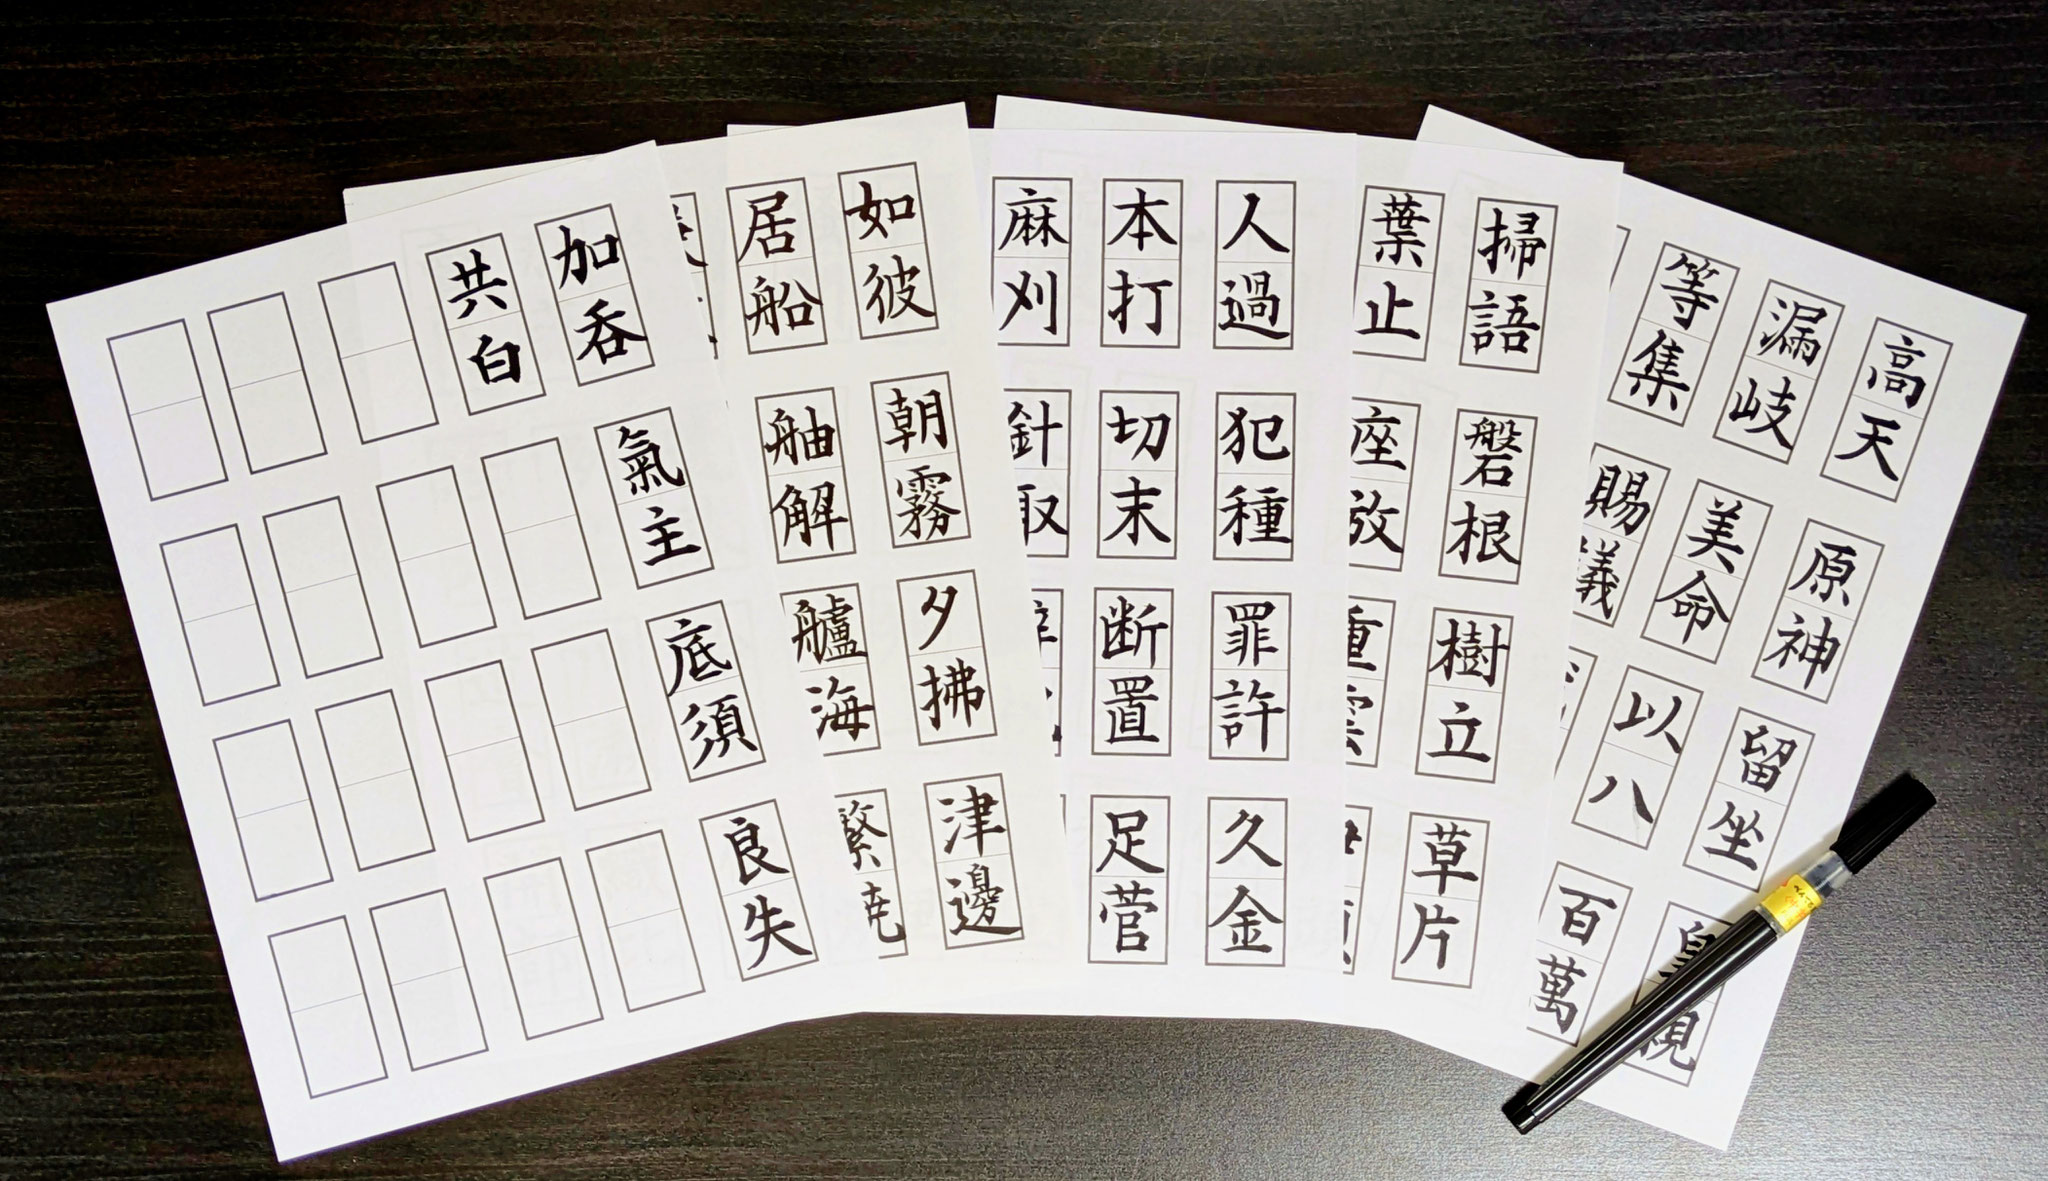 高天原神留坐
漏岐美命以八百萬
等集賜議
掃語磐根樹立草片
葉止座放
人過犯種罪許久金
本打切末断置足菅
麻刈針取
如彼朝霧夕拂津邊
居船舳解艫海繁
加呑氣主底須良失
共白